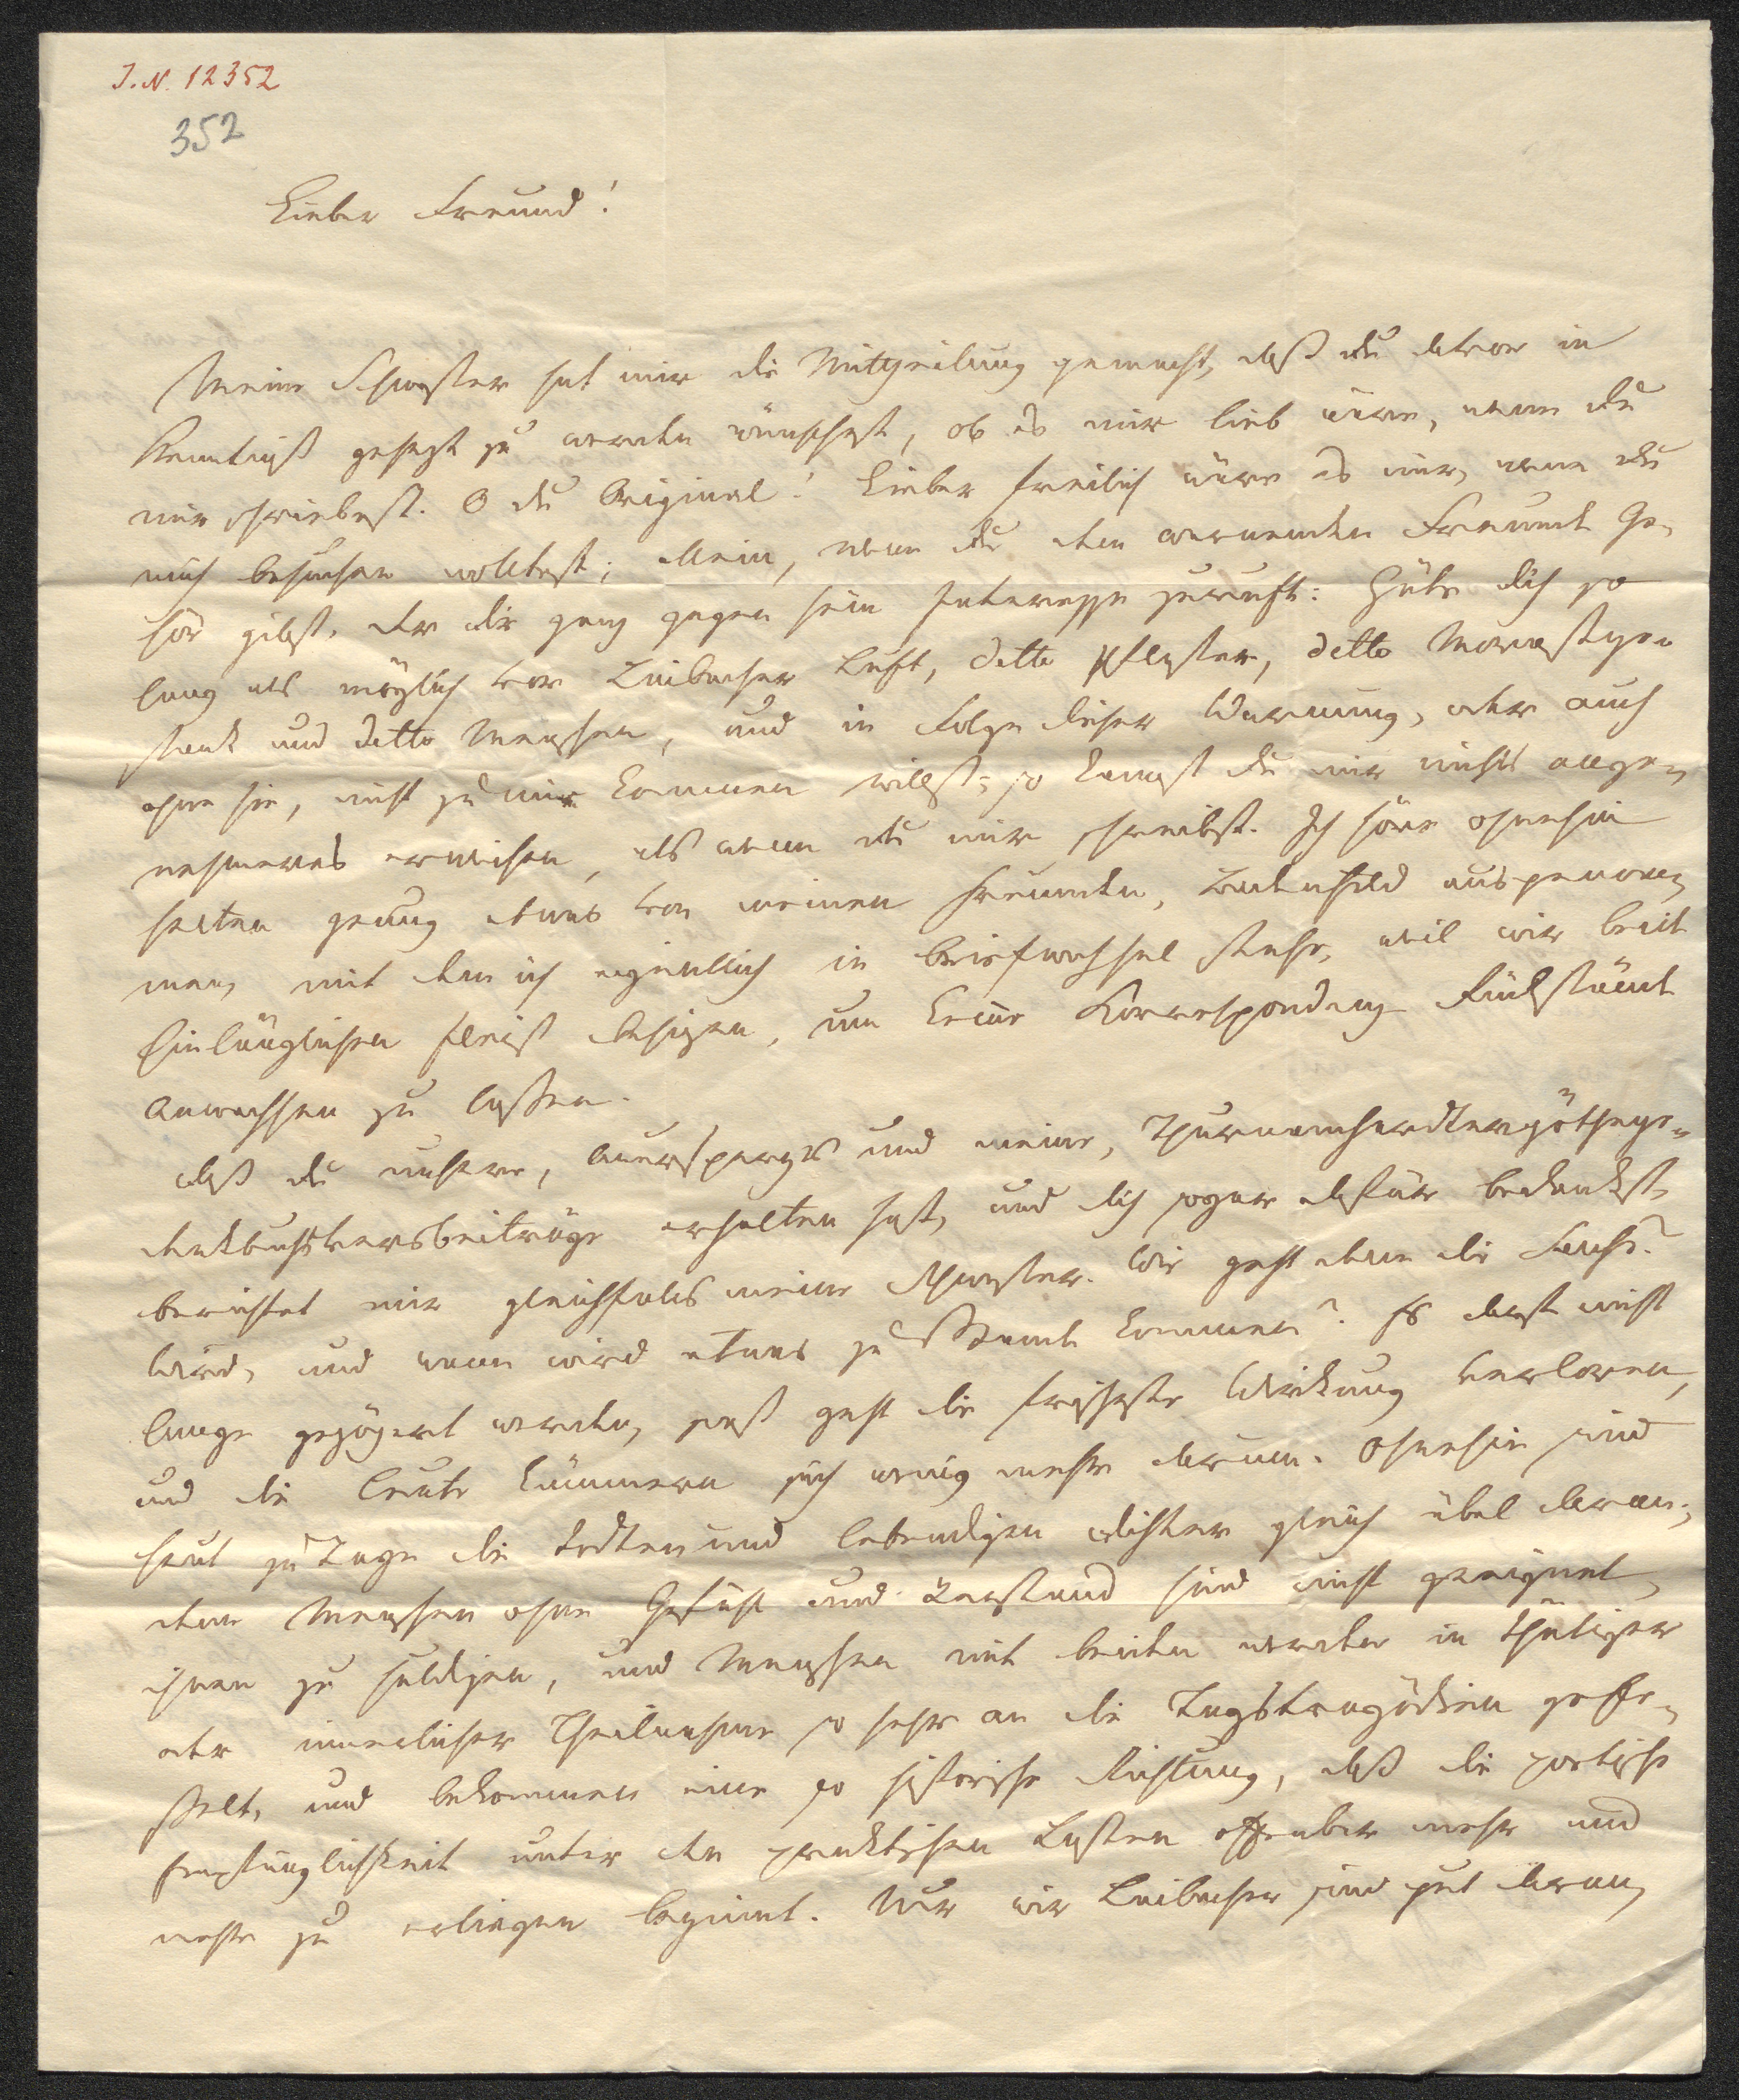 J. N. 12352
352
Lieber Freund!
Meine Schwester hat mir die Mittheilung gemacht, daß du davon in
Kenntniß gesezt zu werden wünschest, ob es mir lieb wäre, wenn du
mir schriebest. O du Original! Lieber freilich wäre es mir, wenn du
mich besuchen wolltest; allein, wenn du dem warnenden Freunde Ge-
hör gibst, der dir ganz gegen sein Interesse zuruft: Hüte dich so
lang als möglich vor Laibacher Luft, detto Pflaster, detto Morastge-
stank und detto Menschen, und in Folge dieser Warnung, oder auch
ohne sie, nicht zu mir kommen willst; so kannst du mir nichts ange-
nehmeres erweisen, als wenn du mir schreibst. Ich höre ohnehin
selten genug etwas von meinen Freunden, ausgenom-
men, mit dem ich eigentlich in Briefwechsel stehe, weil wir beide
hinlänglichen Fleiß besizen, um keine Korrespondenz Rückstände
anwachsen zu lassen.
Daß du unsere, Auerspergs und meine,
berichtet mir gleichfalls meine Schwester. Wie geht denn die Sache?
Wird, und wann wird etwas zu Stande kommen? Es darf nicht
lange gezögert werden, sonst geht die frischeste Wirkung verloren,
und die Leute kümmern sich wenig mehr darum. Ohnehin sind
heut zu Tage die todten und lebendigen Dichter gleich übel daran;
denn Menschen ohne Gefühl und Verstand sind nicht geeignet,
ihnen zu huldigen, und Menschen mit beiden werden in thätiger
oder innerlicher Theilnahme so sehr an die Tagstragödien gefe-
sselt, und bekommen eine so historische Richtung, daß die poetische
Empfänglichkeit unter den praktischen Lasten offenbar mehr und
mehr zu erliegen beginnt. Nur wir Laibacher sind gut daran,